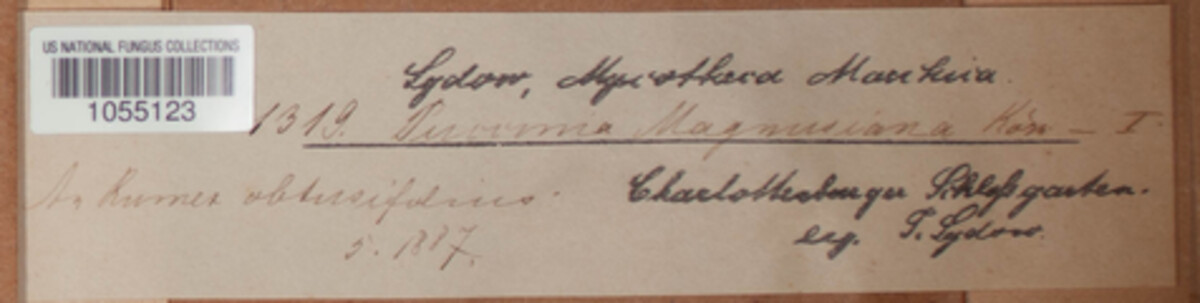 US NATIONAL FUNGUS COLLECTIONS
1055123
Sydow, Mycotheca Marchica.
1319. Puccinia Magnusiana Körn – I.
An Rumex obtusifolius.
5. 1887.
Charlottenburger Schloßgarten.
leg. P. Sydow.